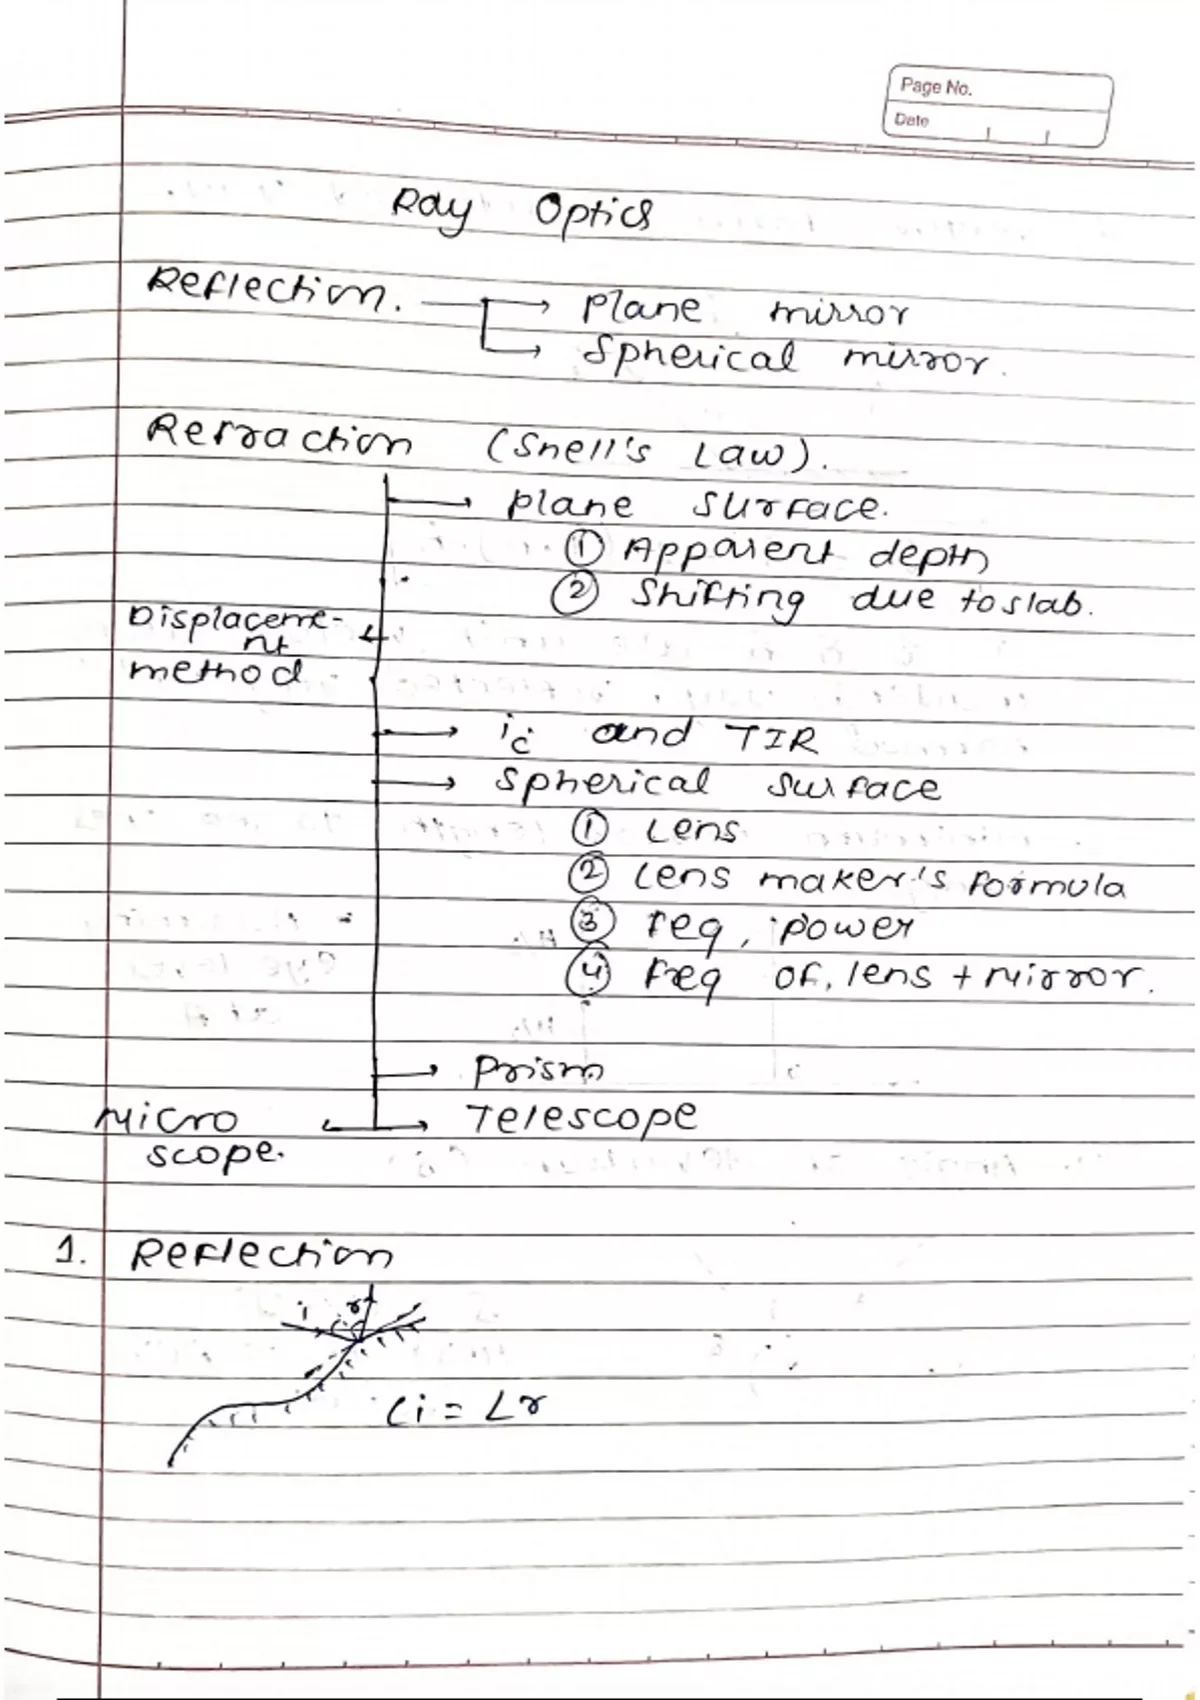 Page No.
Date
Ray Optics
Reflection. → Plane mirror
→ Spherical mirror.
Refraction (Snell's Law).
→ plane surface.
① Apparent depth
② Shifting due to slab.
Displaceme-
nt
method
→ ic and TIR
→ spherical surface
① Lens
② Lens maker's formula
③ feq, power
④ feq of lens + mirror.
→ Prism
Micro ← → Telescope
scope.
1. Reflection
i r
∠i = ∠r